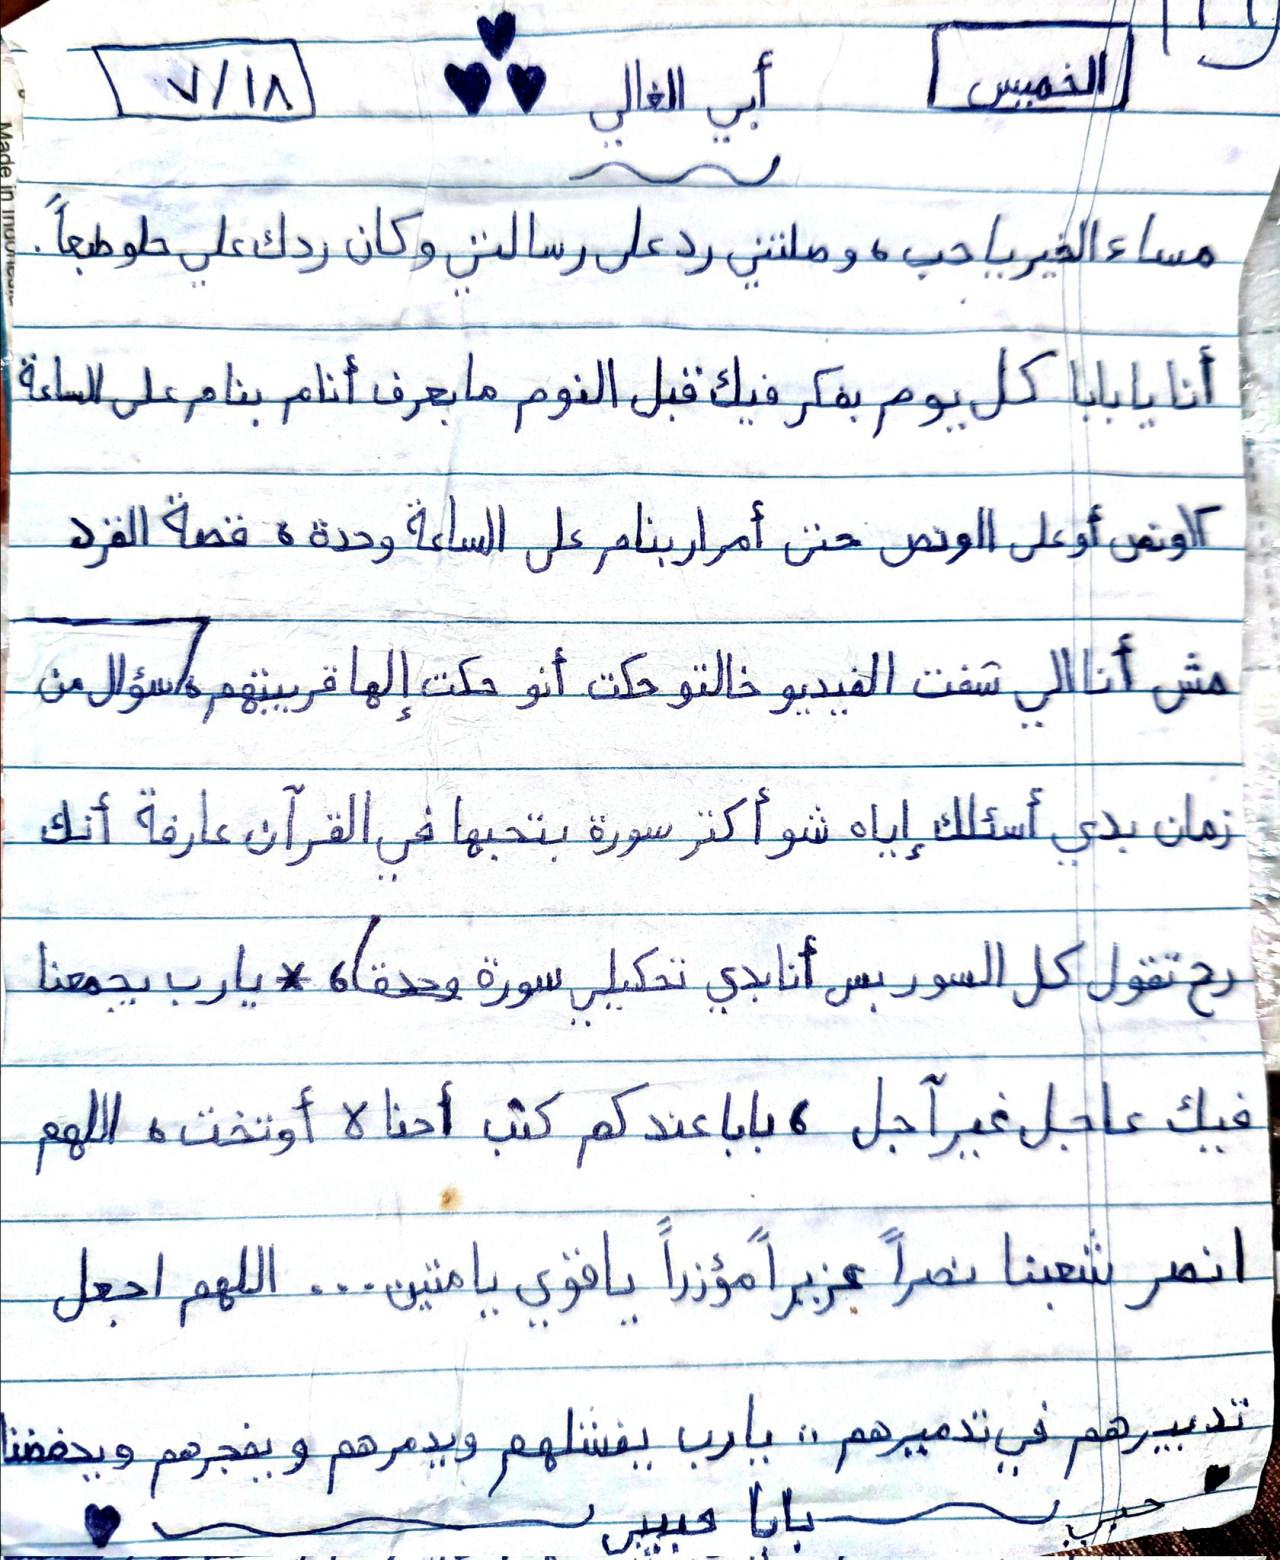 الخميس أبي الغالي ٧/١٨
مساء الخير يا حب، وصلتني رد على رسالتي وكان ردك علي حلو طبعاً.
أنا يا بابا كل يوم بفكر فيك قبل النوم ما بعرف أنام بنام على الساعة
١١ونص أو على الونص حتى أمرار بنام على الساعة وحدة، قصة القرد
مش أنا الي شفت الفيديو خالتو حكت أنو حكت إلها قريبتهم، سؤال من
زمان بدي أسئلك إياه شو أكتر سورة بتحبها في القرآن عارفة أنك
رح تقول كل السور بس أنا بدي تحكيلي سورة وحدة)، * يارب يجمعنا
فيك عاجل غير آجل، بابا عندكم كنب أحنا لا أو تخت، اللهم
انصر شعبنا نصراً عزيزاً مؤزراً يا قوي يا متين... اللهم اجعل
تدبيرهم في تدميرهم،، يارب يفشلهم ويدمرهم ويفجرهم ويحفضنا
حبيب بابا حبيبي
Made in